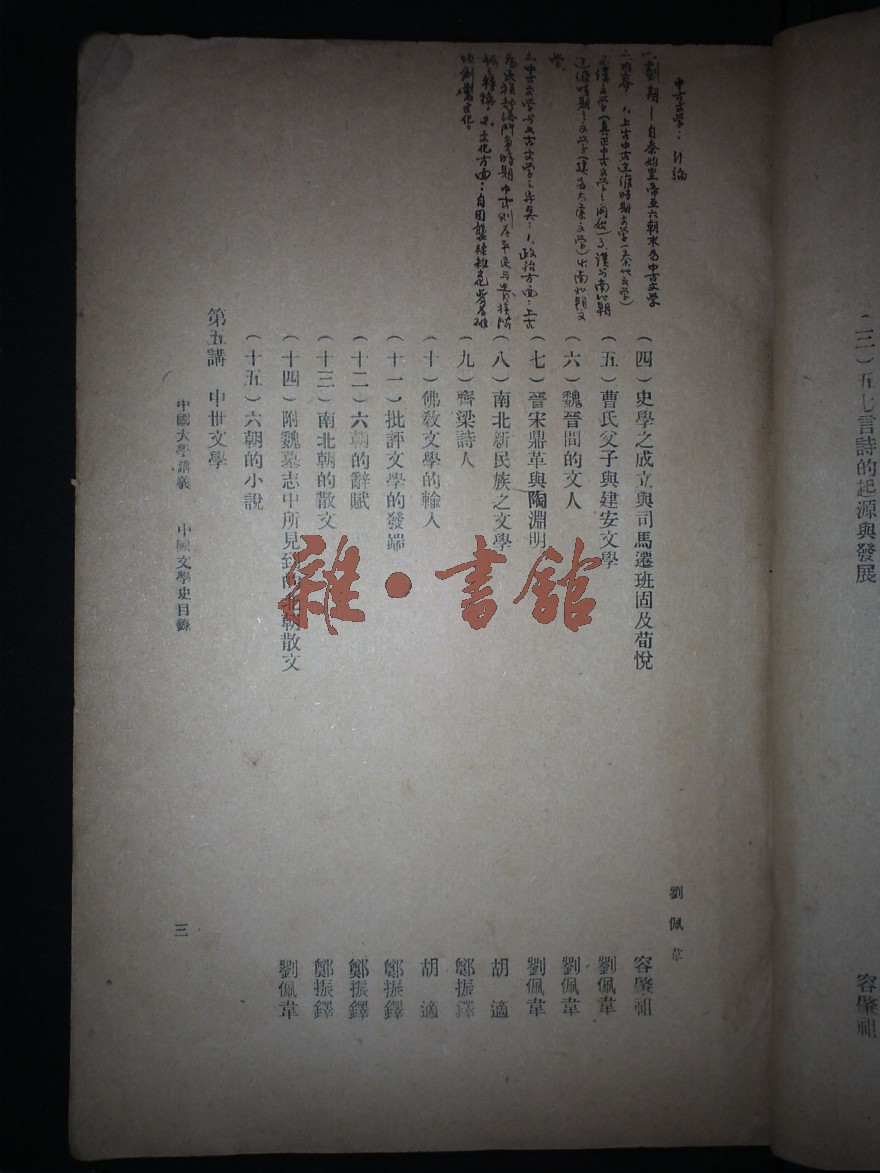 (三)五七言詩的起源與發展
容肇祖
中古文學：討論
一、劃期——自秦始皇帝至六朝末為中古文學
二、內容：1、上古中古遞進時期文學(秦代文學)
2、漢文學(真正中古文學之開始)3、漢與南北朝
遞進時期之文學(建安太康文學)4、南北朝文
學。
三、中古文學與上古文學之異點：1、政治方面：上古
劉佩韋
(四)史學之成立與司馬遷班固及荀悅
容肇祖
(五)曹氏父子與建安文學
劉佩韋
(六)魏晉間的文人
劉佩韋
(七)晉宋鼎革與陶淵明
劉佩韋
(八)南北新民族之文學
胡適
(九)齊梁詩人
鄭振鐸
(十)佛教文學的輸入
胡適
(十一)批評文學的發端
鄭振鐸
(十二)六朝的辭賦
鄭振鐸
(十三)南北朝的散文
鄭振鐸
(十四)附魏墓志中所見到南北朝散文
劉佩韋
(十五)六朝的小說
第五講 中世文學
中國大學講義 中國文學史目錄
三
雜·書館